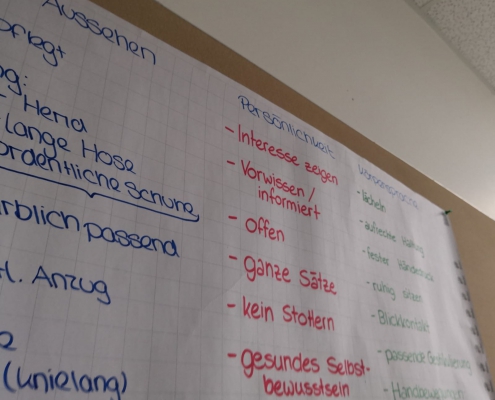 Aussehen
Hemd
lange Hose
ordentliche Schuhe
passend
Anzug
Persönlichkeit
- Interesse zeigen
- Vorwissen /
informiert
- Offen
- ganze Sätze
- kein Stottern
- gesundes Selbst-
bewusstsein
Körpersprache
- lächeln
- aufrechte Haltung
- fester Händedruck
- ruhig sitzen
- Blickkontakt
- passende
- Handbewegungen